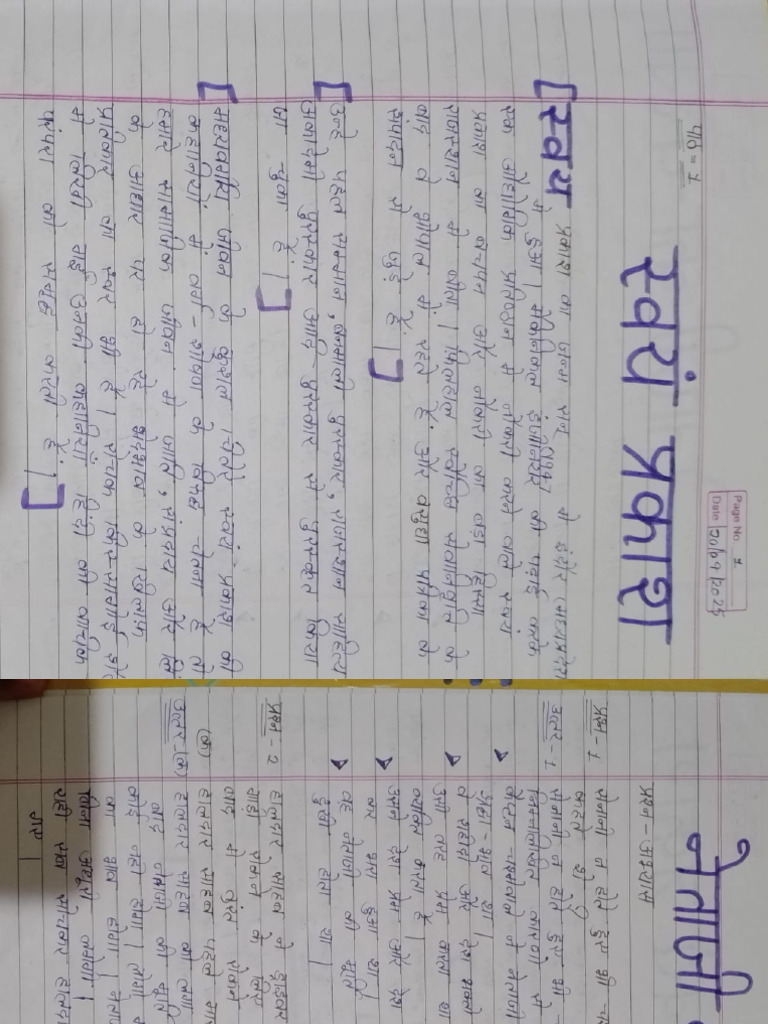 Page No. 1
Date 20/04/2025
पाठ = 1
स्वयं प्रकाश
स्वयं प्रकाश का जन्म सन् 1947 में इंदौर मध्यप्रदेश
में हुआ। मैकेनिकल इंजीनियरिंग की पढ़ाई करके
एक औद्योगिक प्रतिष्ठान में नौकरी करने वाले स्वयं
प्रकाश का बचपन और नौकरी का बड़ा हिस्सा
राजस्थान में बीता। फिलहाल स्वैच्छिक सेवानिवृत्ति के
बाद वे भोपाल में रहते हैं और वसुधा पत्रिका के
संपादन से जुड़े हैं।
उन्हें पहल सम्मान, बनमाली पुरस्कार, राजस्थान साहित्य
अकादेमी पुरस्कार आदि पुरस्कार से पुरस्कृत किया
जा चुका है।
मध्यवर्गीय जीवन के कुशल चितेरे स्वयं प्रकाश की
कहानियों में वर्ग-शोषण के विरुद्ध चेतना है तो
हमारे सामाजिक जीवन में जाति, संप्रदाय और लिंग
के आधार पर हो रहे भेदभाव के खिलाफ
प्रतिकार का स्वर भी है। रोचक किस्सागोई शैली
में लिखी गई उनकी कहानियाँ हिंदी की वाचिक
परंपरा को समृद्ध करती हैं।
नेताजी
प्रश्न-अभ्यास
प्रश्न-1 सेनानी न होते हुए भी
कहते थे?
उत्तर-1 सेनानी न होते हुए भी
निम्नलिखित कारणों से
कैप्टन चश्मेवाले में नेताजी
श्रद्धा-भाव था।
वे शहीदों और देश भक्तों
उसी तरह प्रेम करता था
व्यक्ति करता है।
उसमें देश प्रेम और देश
कर भरा हुआ था।
वह नेताजी की मूर्ति
दुखी होता था।
प्रश्न-2 हालदार साहब ने ड्राइवर
गाड़ी रोकने के लिए
बाद में तुरंत रोकने
(क) हालदार साहब पहले
उत्तर-(क) हालदार साहब को लगा
बाद नेताजी की मूर्ति
कोई नहीं होगा।
का भाव होगा।
बिना अधूरी लगेगी।
यही सब सोचकर हालदार
गए।